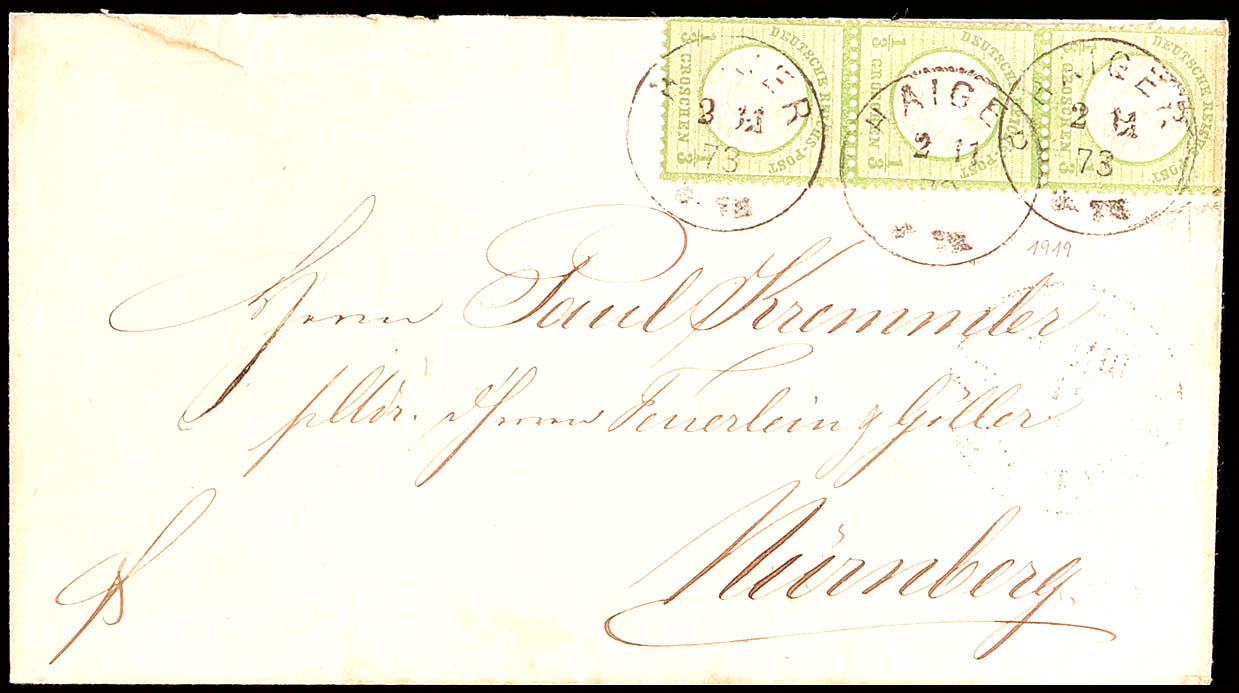 ⅓ DEUTSCHE REICHS-POST ⅓ GROSCHEN
⅓ DEUTSCHE REICHS-POST ⅓ GROSCHEN
⅓ DEUTSCHE REICHS-POST GROSCHEN
HAIGER
2 11
73
HAIGER
2 11
HAIGER
2 11
73
1919
Herrn Paul Kremmler
Herren Feuerlein & Giller
Nürnberg